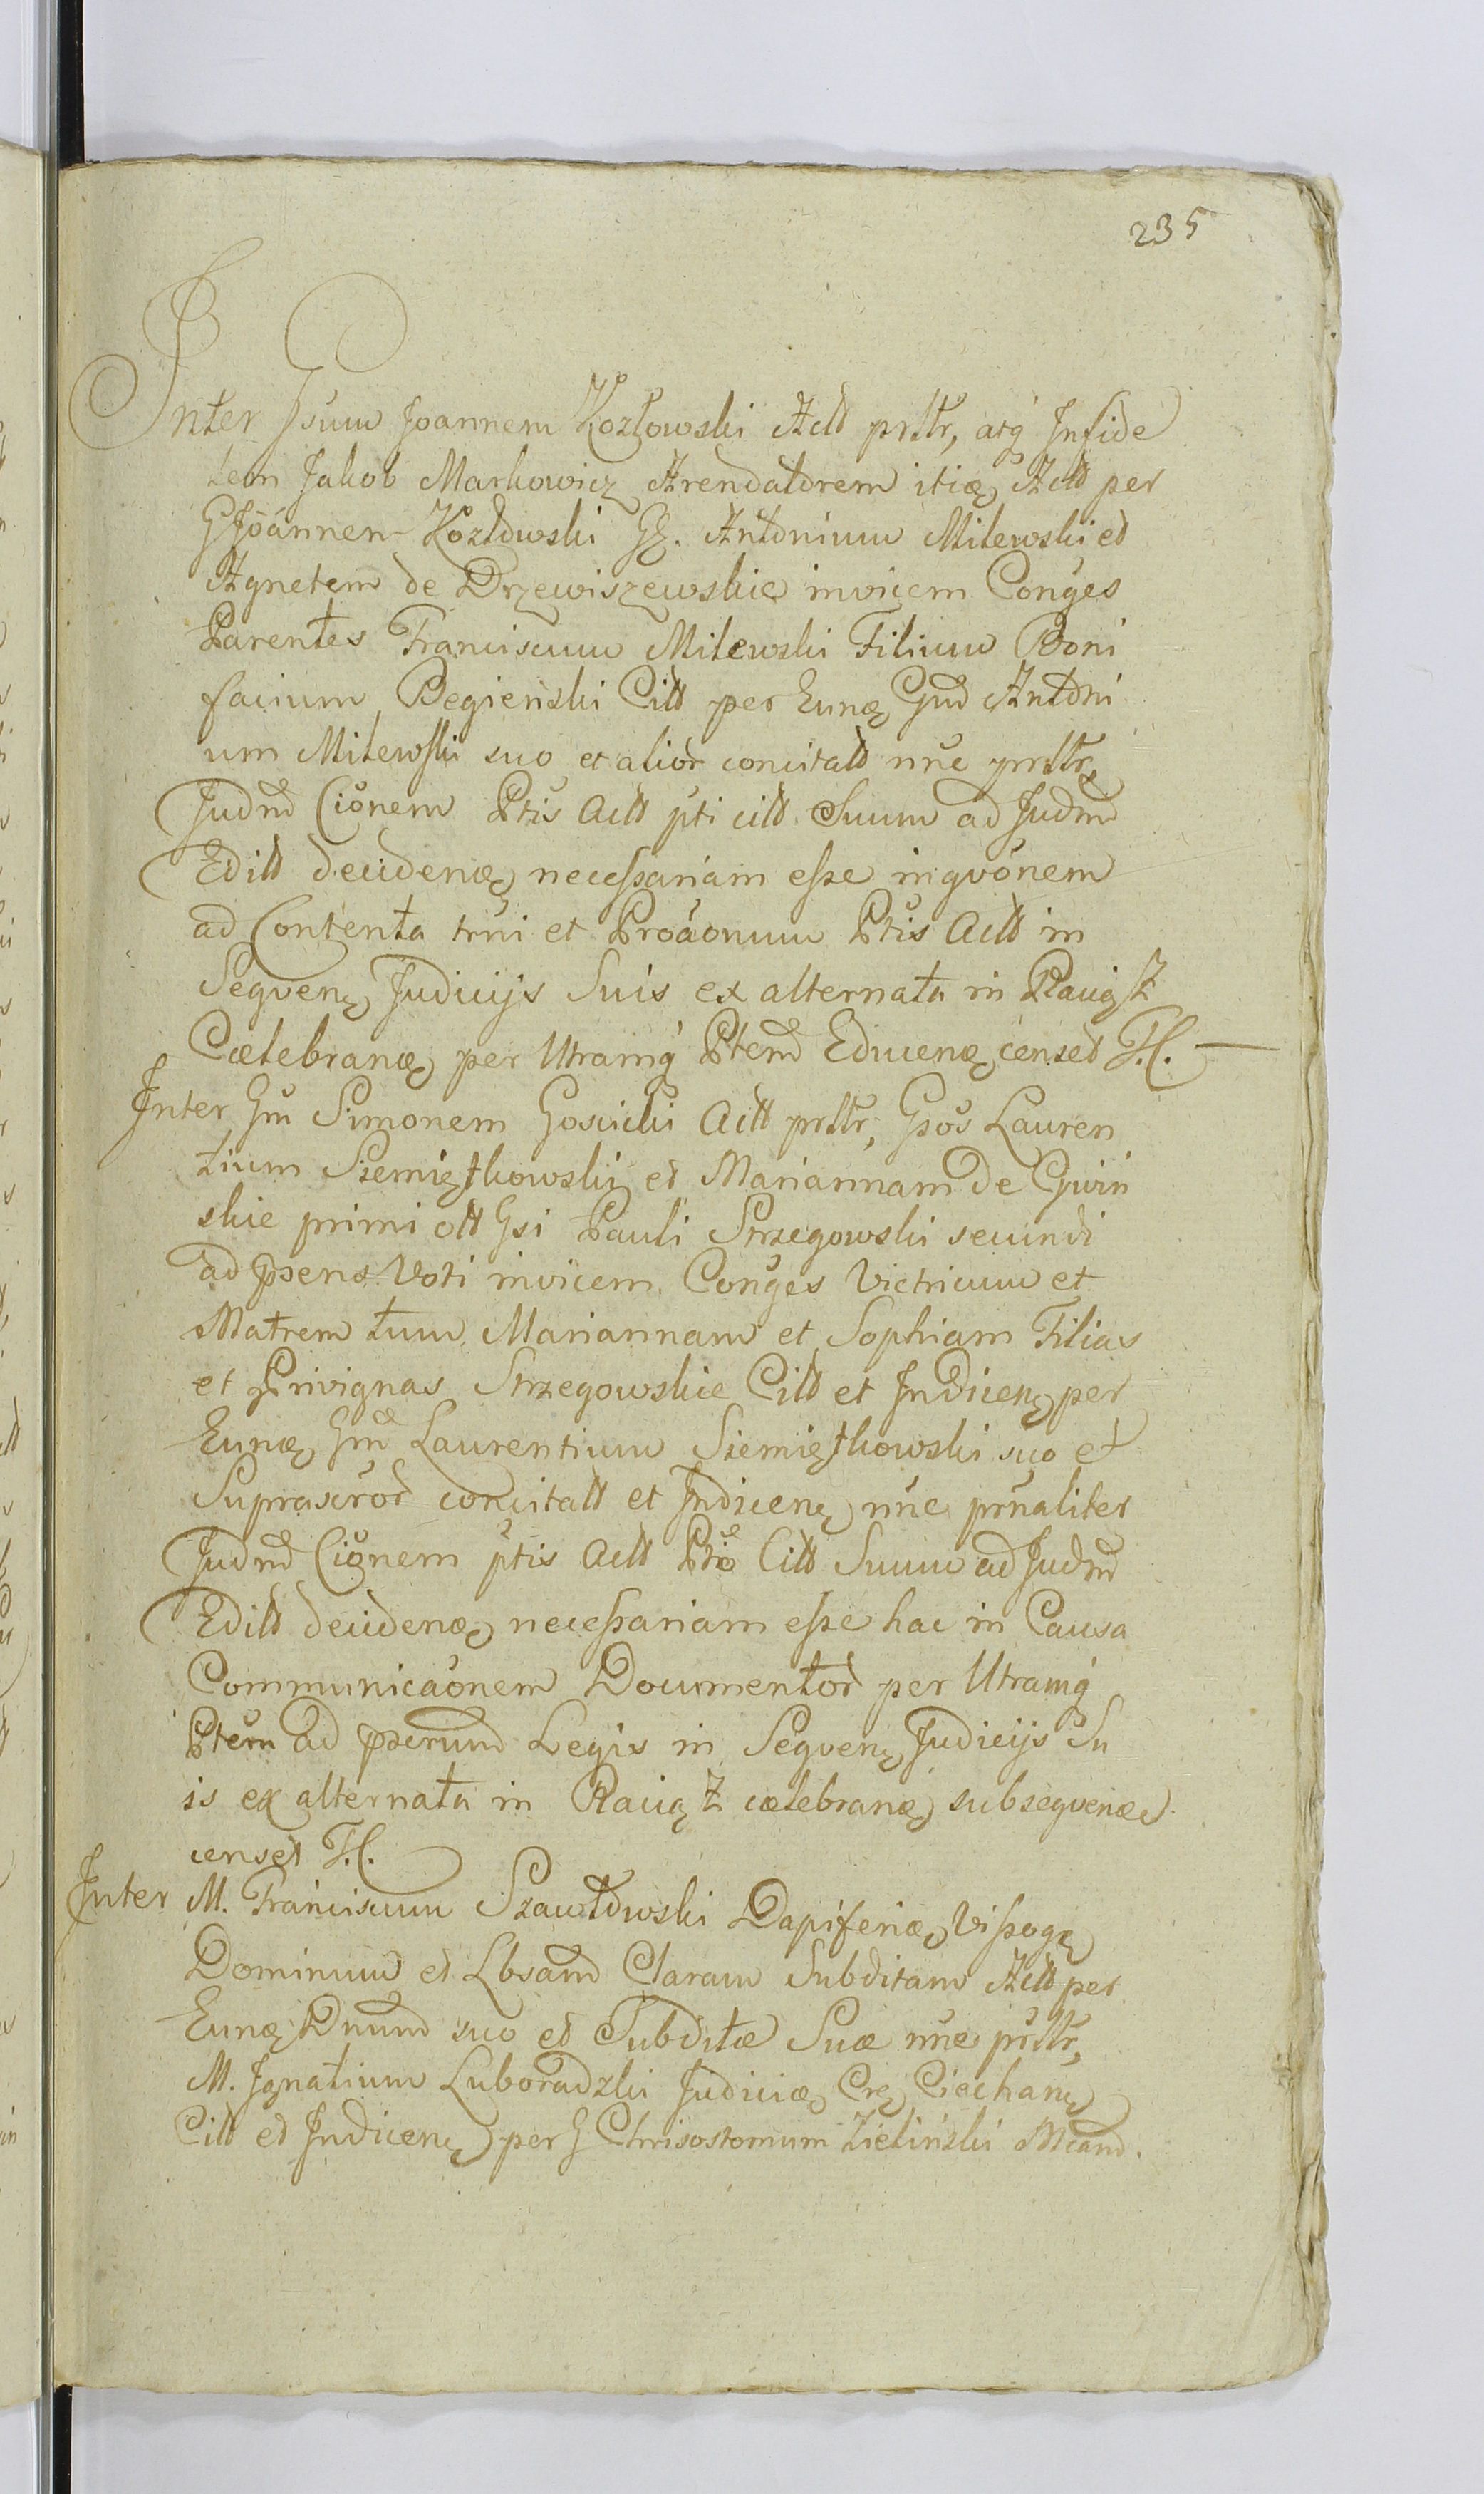 235
Inter Gsum Joannem Kozłowski Actt prttr, atq Infide
lem Jakob Markowicz Arendatorem itiæ Actt per
G Joannem Kozłowski GG. Antonium Milewski et
Agnetem de Drzewiszewskie invicem Conges
Parentes Franciscum Milewski Filium Boni
facium Begieński Citt per Eunæ Gnd Antoni
um Milewski suo et alior concitatt nne prttr
Judnd Cionem Ptis Actt pti citt Suum ad Judnd
Editt decidenæ necessariam esse inqvonem
ad Contenta trni et Proaonum Ptis Actt in
Seqvenę Judicijs Suis ex alternata in Raciąż
Cœlebranæ per Utramq Ptem Educenæ censet T.H.
Inter Gm Simonem Goscicki Actt prttr, Gsos Lauren
tium Siemiętkowski et Mariannam de Gwin
skie primi ott Gsi Pauli Strzegowski secundi
ad psens Voti invicem Conges Victricum et
Matrem tum Mariannam et Sophiam Filias
et Privignas Strzegowskie Citt et Indicenę per
Eunæ Gm Laurentium Siemiętkowski suo et
Suprascror concitatt et Indicenę nne prnaliter
Judnd Cionem ptis Actt Ptie Citt Suum ad Judnd
Editt decidenæ necessariam esse hac in Causa
Communicaonem Documentor per Utramq
Ptem ad pserund Legis in Seqvenę Judicijs Su
is ex alternata in Raciąż cœlebranæ subseqvenæ
censet T.H.
Inter M. Franciscum Szawłowski Dapiferiæ Vissogę
Dominum et Lbsam Claram Subditam Actt per
Eunæ Dnum suo et Subditæ Suæ nne prttr,
M. Ignatium Luboradzki Judiciæ Crę Ciechanę
Citt et Indicenę per G Chrisostomum Zieliński Mand.